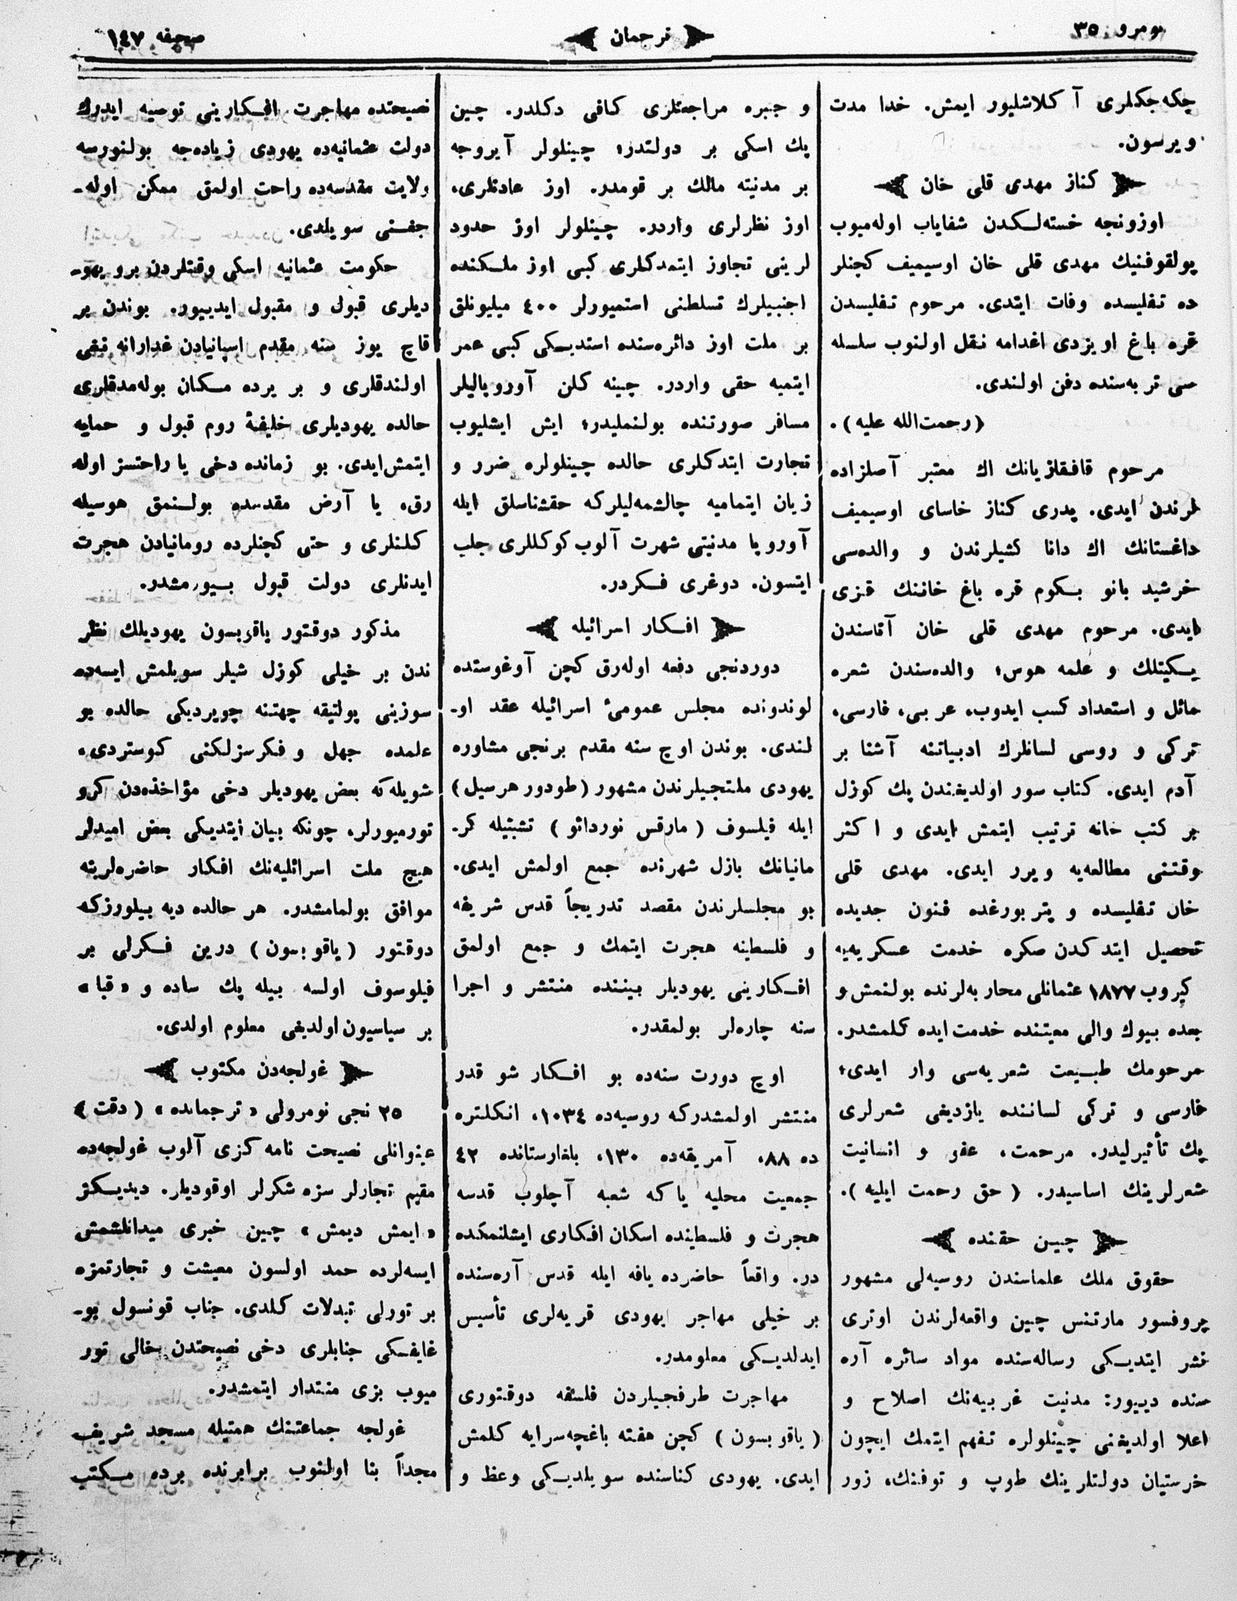 نومرو ٣٥
ترجمان
صحيفه ١٤٧
چكه‌جكلرى آ كلاشليور ايمش. خدا مدت
ويرسون.
كناز مهدى قلى خان
اوزونجه خسته‌لكدن شفاياب اوله‌ميوب
پولقوفنيك مهدى قلى خان اوسيميف كچنلر
ده تفليسده وفات ايتدى. مرحوم تفليسدن
قره باغ اويزدى اغدامه نقل اولنوب سلسله
سى تربه‌سنده دفن اولندى.
(رحمت‌الله عليه).
مرحوم قافقازيانك اك معتبر آصلزاده
لرندن ايدى. پدرى كناز خاساى اوسيميف
داغستانك اك دانا كشيلرندن و والده‌سى
خرشيد بانو بكوم قره باغ خاننك قزى
ايدى. مرحوم مهدى قلى خان آتاسندن
يكيتلك و علمه هوس؛ والده‌سندن شعره
مائل و استعداد كسب ايدوب، عربى، فارسى،
تركى و روسى لسانلرك ادبياتنه آشنا بر
آدم ايدى. كتاب سور اولديغندن پك كوزل
بر كتب خانه ترتيب ايتمش ايدى و اكثر
وقتنى مطالعه‌يه ويرر ايدى. مهدى قلى
خان تفليسده و پتربورغده فنون جديده
تحصيل ايتدكدن صكره خدمت عسكريه‌يه
كيروب ١٨٧٧ عثمانلى محاربه‌لرنده بولنمش و
بعده بيوك والى معيتنده خدمت ايده كلمشدر.
مرحومك طبيعت شعريه‌سى وار ايدى؛
فارسى و تركى لساننده يازديغى شعرلرى
پك تأثيرليدر. مرحمت، عفو و انسانيت
شعرلرينك اساسيدر. (حق رحمت ايليه).
چين حقنده
حقوق ملك علماسندن روسيه‌لى مشهور
پروفسور مارتنس چين واقعه‌لرندن اوترى
نشر ايتديكى رساله‌سنده مواد سائره آره
سنده دييور: مدنيت غربيه‌نك اصلاح و
اعلا اولديغنى چينلولره تفهم ايتمك ايچون
خرستيان دولتلرينك طوپ و توفنك، زور
و جبره مراجعتلرى كافى دكلدر. چين
پك اسكى بر دولتدر؛ چينلولر آيروجه
بر مدنيته مالك بر قومدر. اوز عادتلرى،
اوز نظرلرى واردر. چينلولر اوز حدود
لرينى تجاوز ايتمدكلرى كبى اوز ملكنده
اجنبيلرك تسلطنى استميورلر ٤٠٠ ميليونلق
بر ملت اوز دائره‌سنده استديكى كبى عمر
ايتميه حقى واردر. چينه كلن آوروپاليلر
مسافر صورتنده بولنمليدر؛ ايش ايشليوب
تجارت ايتدكلرى حالده چينلولره ضرر و
زيان ايتماميه چالشمه‌ليلركه حقشناسلق ايله
آوروپا مدنيتى شهرت آلوب كوكللرى جلب
ايتسون. دوغرى فكردر.
افكار اسرائيله
دوردنجى دفعه اوله‌رق كچن آوغوستده
لوندونده مجلس عمومئ اسرائيله عقد او-
لندى. بوندن اوچ سنه مقدم برنجى مشاوره
يهودى ملتجيلرندن مشهور (طودور هرسيل)
ايله فيلسوف (مارقس نوردائو) تشبثيله كر-
مانيانك بازل شهرنده جمع اولمش ايدى.
بو مجلسلرندن مقصد تدريجاً قدس شريفه
و فلسطينه هجرت ايتمك و جمع اولمق
افكارينى يهوديلر بيننده منتشر و اجرا
سنه چاره‌لر بولمقدر.
اوچ دورت سنه‌ده بو افكار شو قدر
منتشر اولمشدركه روسيه‌ده ١٠٣٤، انكلتره
ده ٨٨، آمريقه‌ده ١٣٠، بلغارستانده ٤٢
جمعيت محليه ياكه شعبه آچلوب قدسه
هجرت و فلسطينده اسكان افكارى ايشلنمكده
در. واقعاً حاضرده يافه ايله قدس آره‌سنده
بر خيلى مهاجر يهودى قريه‌لرى تأسيس
ايدلديكى معلومدر.
مهاجرت طرفجيلردن فلسفه دوقتورى
(ياقوبسون) كچن هفته باغچه‌سرايه كلمش
ايدى. يهودى كناسنده سويلديكى وعظ و
نصيحتده مهاجرت افكارينى توصيه ايدرك
دولت عثمانيه‌ده يهودى زياده‌جه بولنورسه
ولايت مقدسه‌ده راحت اولمق ممكن اوله-
جغنى سويلدى.
حكومت عثمانيه اسكى وقتلردن برو يهو-
ديلرى قبول و مقبول ايدييور. بوندن بر
قاچ يوز سنه مقدم اسپانيادن غدارانه نفى
اولندقلرى و بر يرده مكان بوله‌مدقلرى
حالده يهوديلرى خليفۀ روم قبول و حمايه
ايتمش‌ايدى. بو زمانده دخى يا راحتسز اوله
رق، يا آرض مقدسده بولنمق هوسيله
كلنلرى و حتى كچنلرده رومانيادن هجرت
ايدنلرى دولت قبول بيورمشدر.
مذكور دوقتور ياقوبسون يهوديلك نظر
ندن بر خيلى كوزل شيلر سويلمش ايسه‌ده
سوزينى پولتيقه جهتنه چويرديكى حالده بو
علمده جهل و فكرسزلكنى كوستردى،
شويله‌كه بعض يهوديلر دخى مؤاخذه‌دن كرو
تورميورلر، چونكه بيان ايتديكى بعض اميدلر
هيچ ملت اسرائليه‌نك افكار حاضره‌لرينه
موافق بولمامشدر. هر حالده ديه بيلورزكه
دوقتور (ياقوبسون) درين فكرلى بر
فيلوسوف اولسه بيله پك ساده و «قبا»
بر سياسيون اولديغى معلوم اولدى.
غولجه‌دن مكتوب
٢٥ نجى نومرولى «ترجمانده» (دقت)
عنوانلى نصيحت نامه كزى آلوب غولجه‌ده
مقيم تجارلر سزه شكرلر اوقوديلر. ديديكز
«ايمش ديمش» چين خبرى ميدانلشمش
ايسه‌لرده حمد اولسون معيشت و تجارتمزه
بر تورلى تبدلات كلدى. جناب قونسول بو-
غايفكى جنابلرى دخى نصيحتدن خالى تور
ميوب بزى منتدار ايتمشدر.
غولجه جماعتنك همتيله مسجد شريف
مجداً بنا اولنوب برابرنده برده مكتب